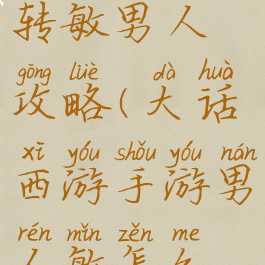 转敏男人
gōng lüè dà huà
攻略(大话
xī yóu shǒu yóu nán
西游手游男
rén mǐn zěn me
人敏怎么